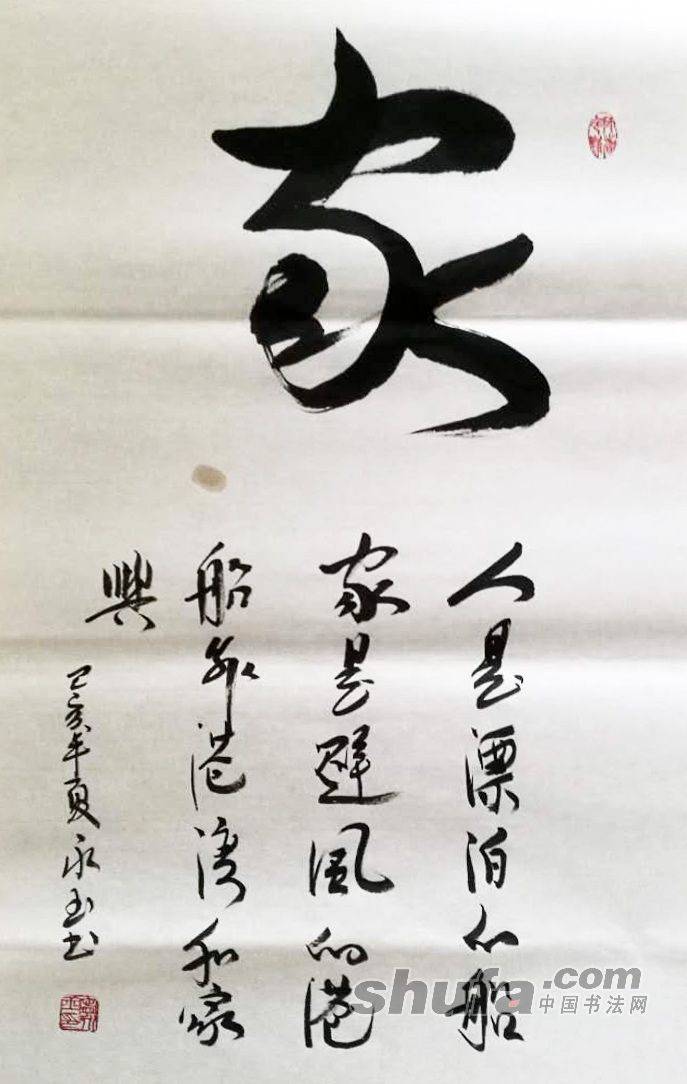 家
人是漂泊的船
家是避風的港
船港湾和家
興
己亥年夏永玉书
shufa.com
中国书法网